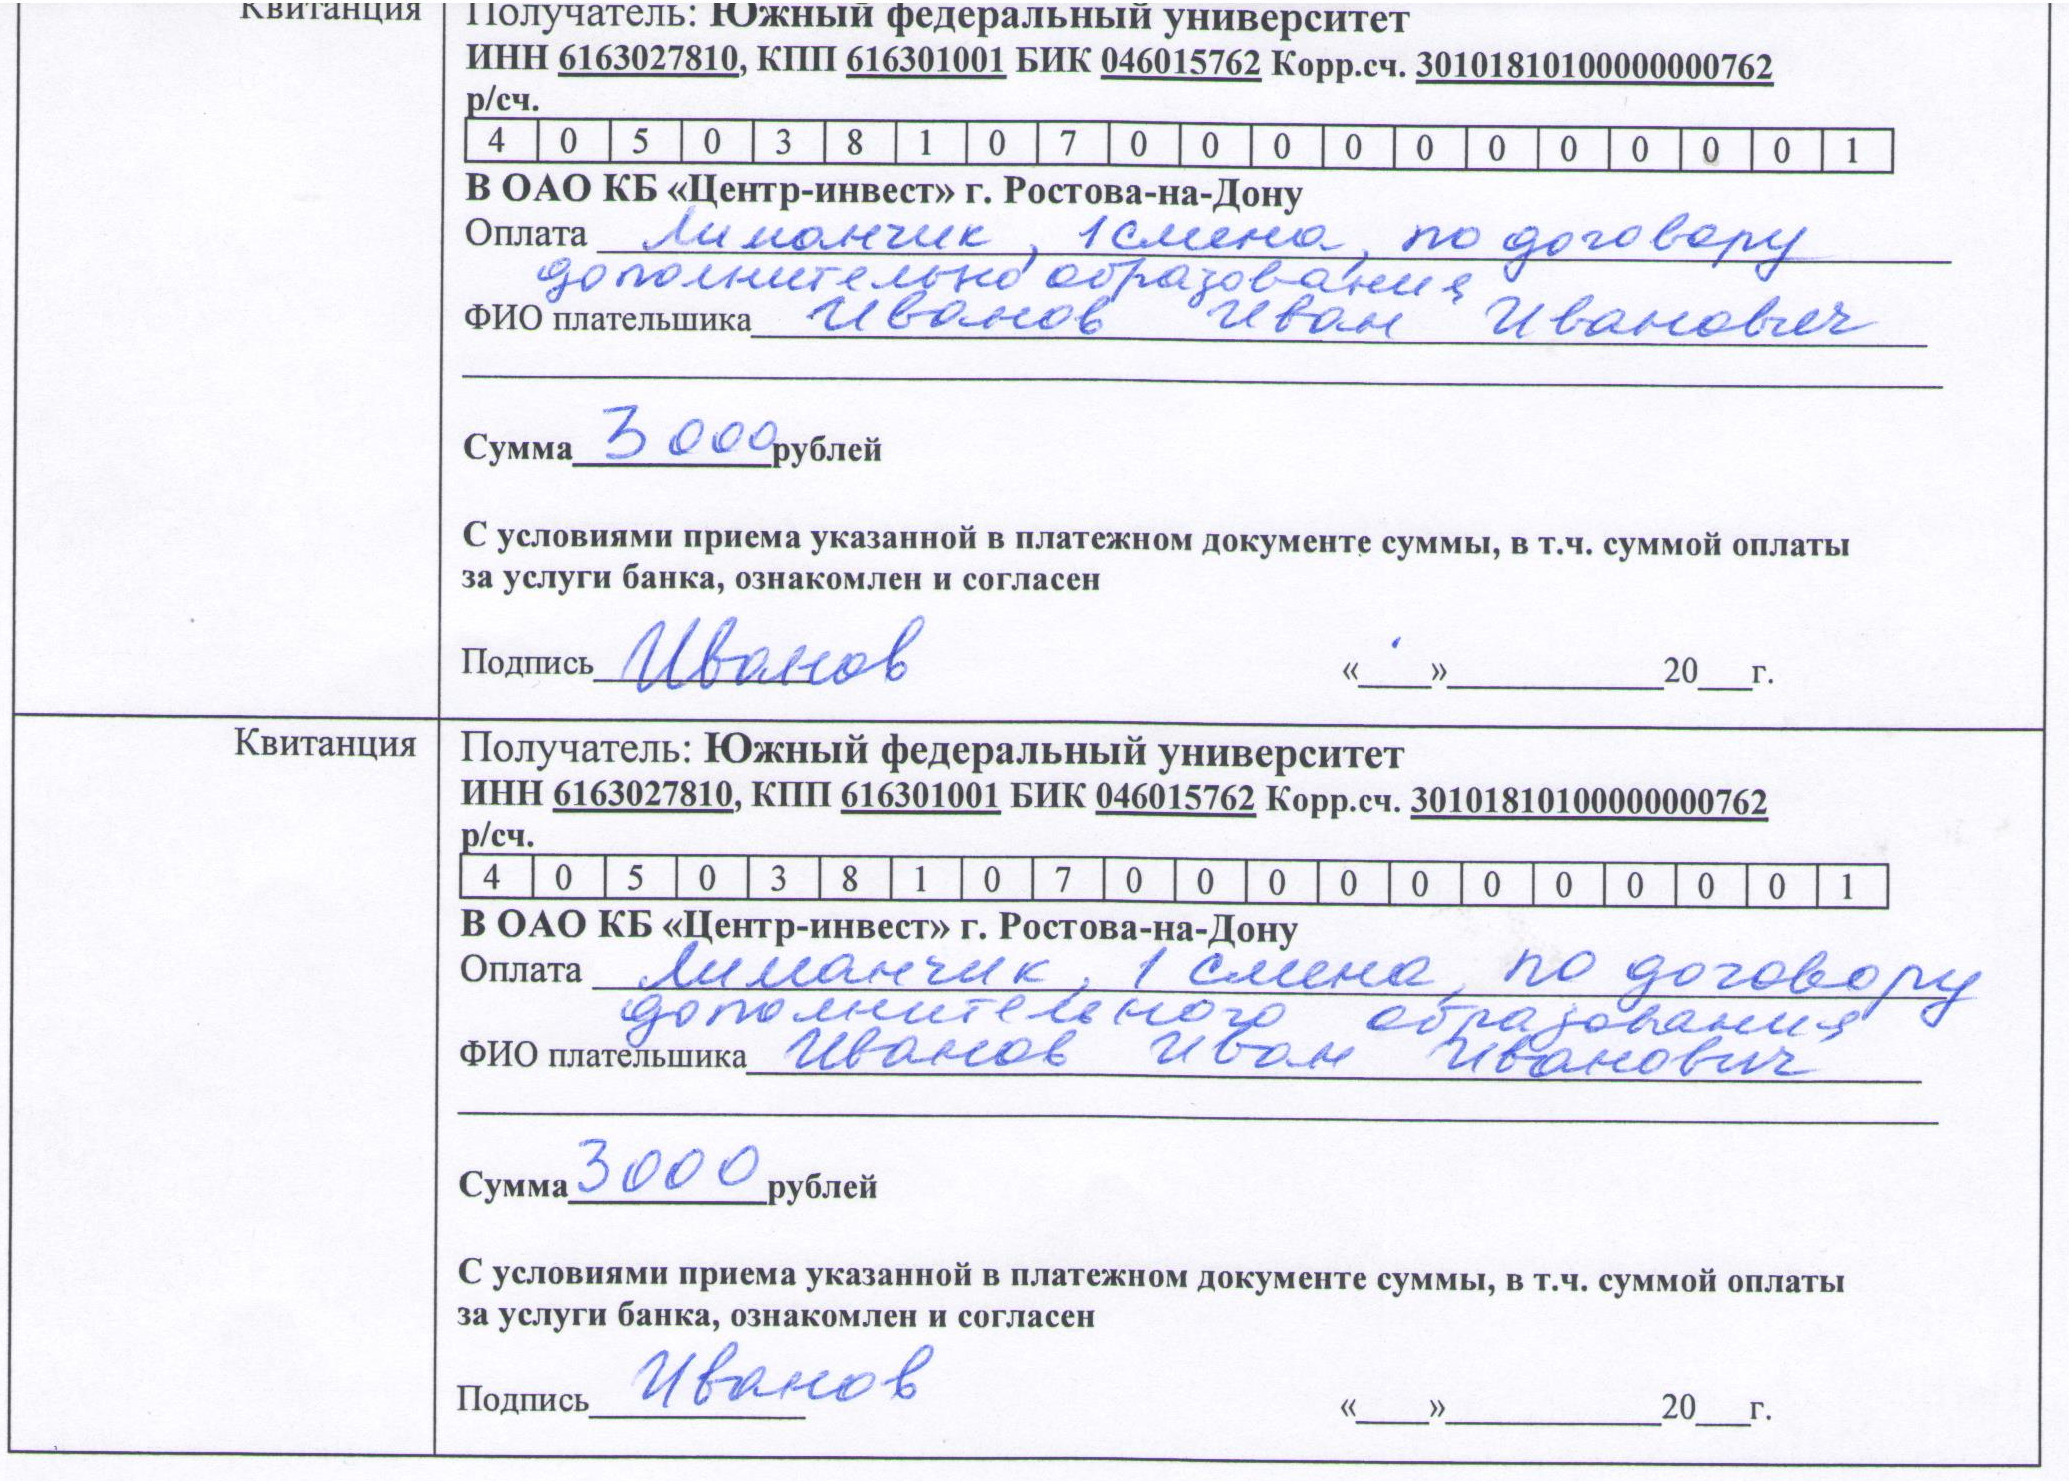 Квитанция
Получатель: Южный федеральный университет
ИНН 6163027810, КПП 616301001 БИК 046015762 Корр.сч. 30101810100000000762
р/сч.
4 0 5 0 3 8 1 0 7 0 0 0 0 0 0 0 0 0 0 1
В ОАО КБ «Центр-инвест» г. Ростова-на-Дону
Оплата Лиманчик, 1 смена, по договору
дополнительно образования
ФИО плательшика Иванов Иван Иванович
Сумма 3 000 рублей
С условиями приема указанной в платежном документе суммы, в т.ч. суммой оплаты
за услуги банка, ознакомлен и согласен
Подпись Иванов «____»____________20___г.
Квитанция
Получатель: Южный федеральный университет
ИНН 6163027810, КПП 616301001 БИК 046015762 Корр.сч. 30101810100000000762
р/сч.
4 0 5 0 3 8 1 0 7 0 0 0 0 0 0 0 0 0 0 1
В ОАО КБ «Центр-инвест» г. Ростова-на-Дону
Оплата Лиманчик, 1 смена, по договору
дополнительного образования
ФИО плательшика Иванов Иван Иванович
Сумма 3000 рублей
С условиями приема указанной в платежном документе суммы, в т.ч. суммой оплаты
за услуги банка, ознакомлен и согласен
Подпись Иванов «____»____________20___г.